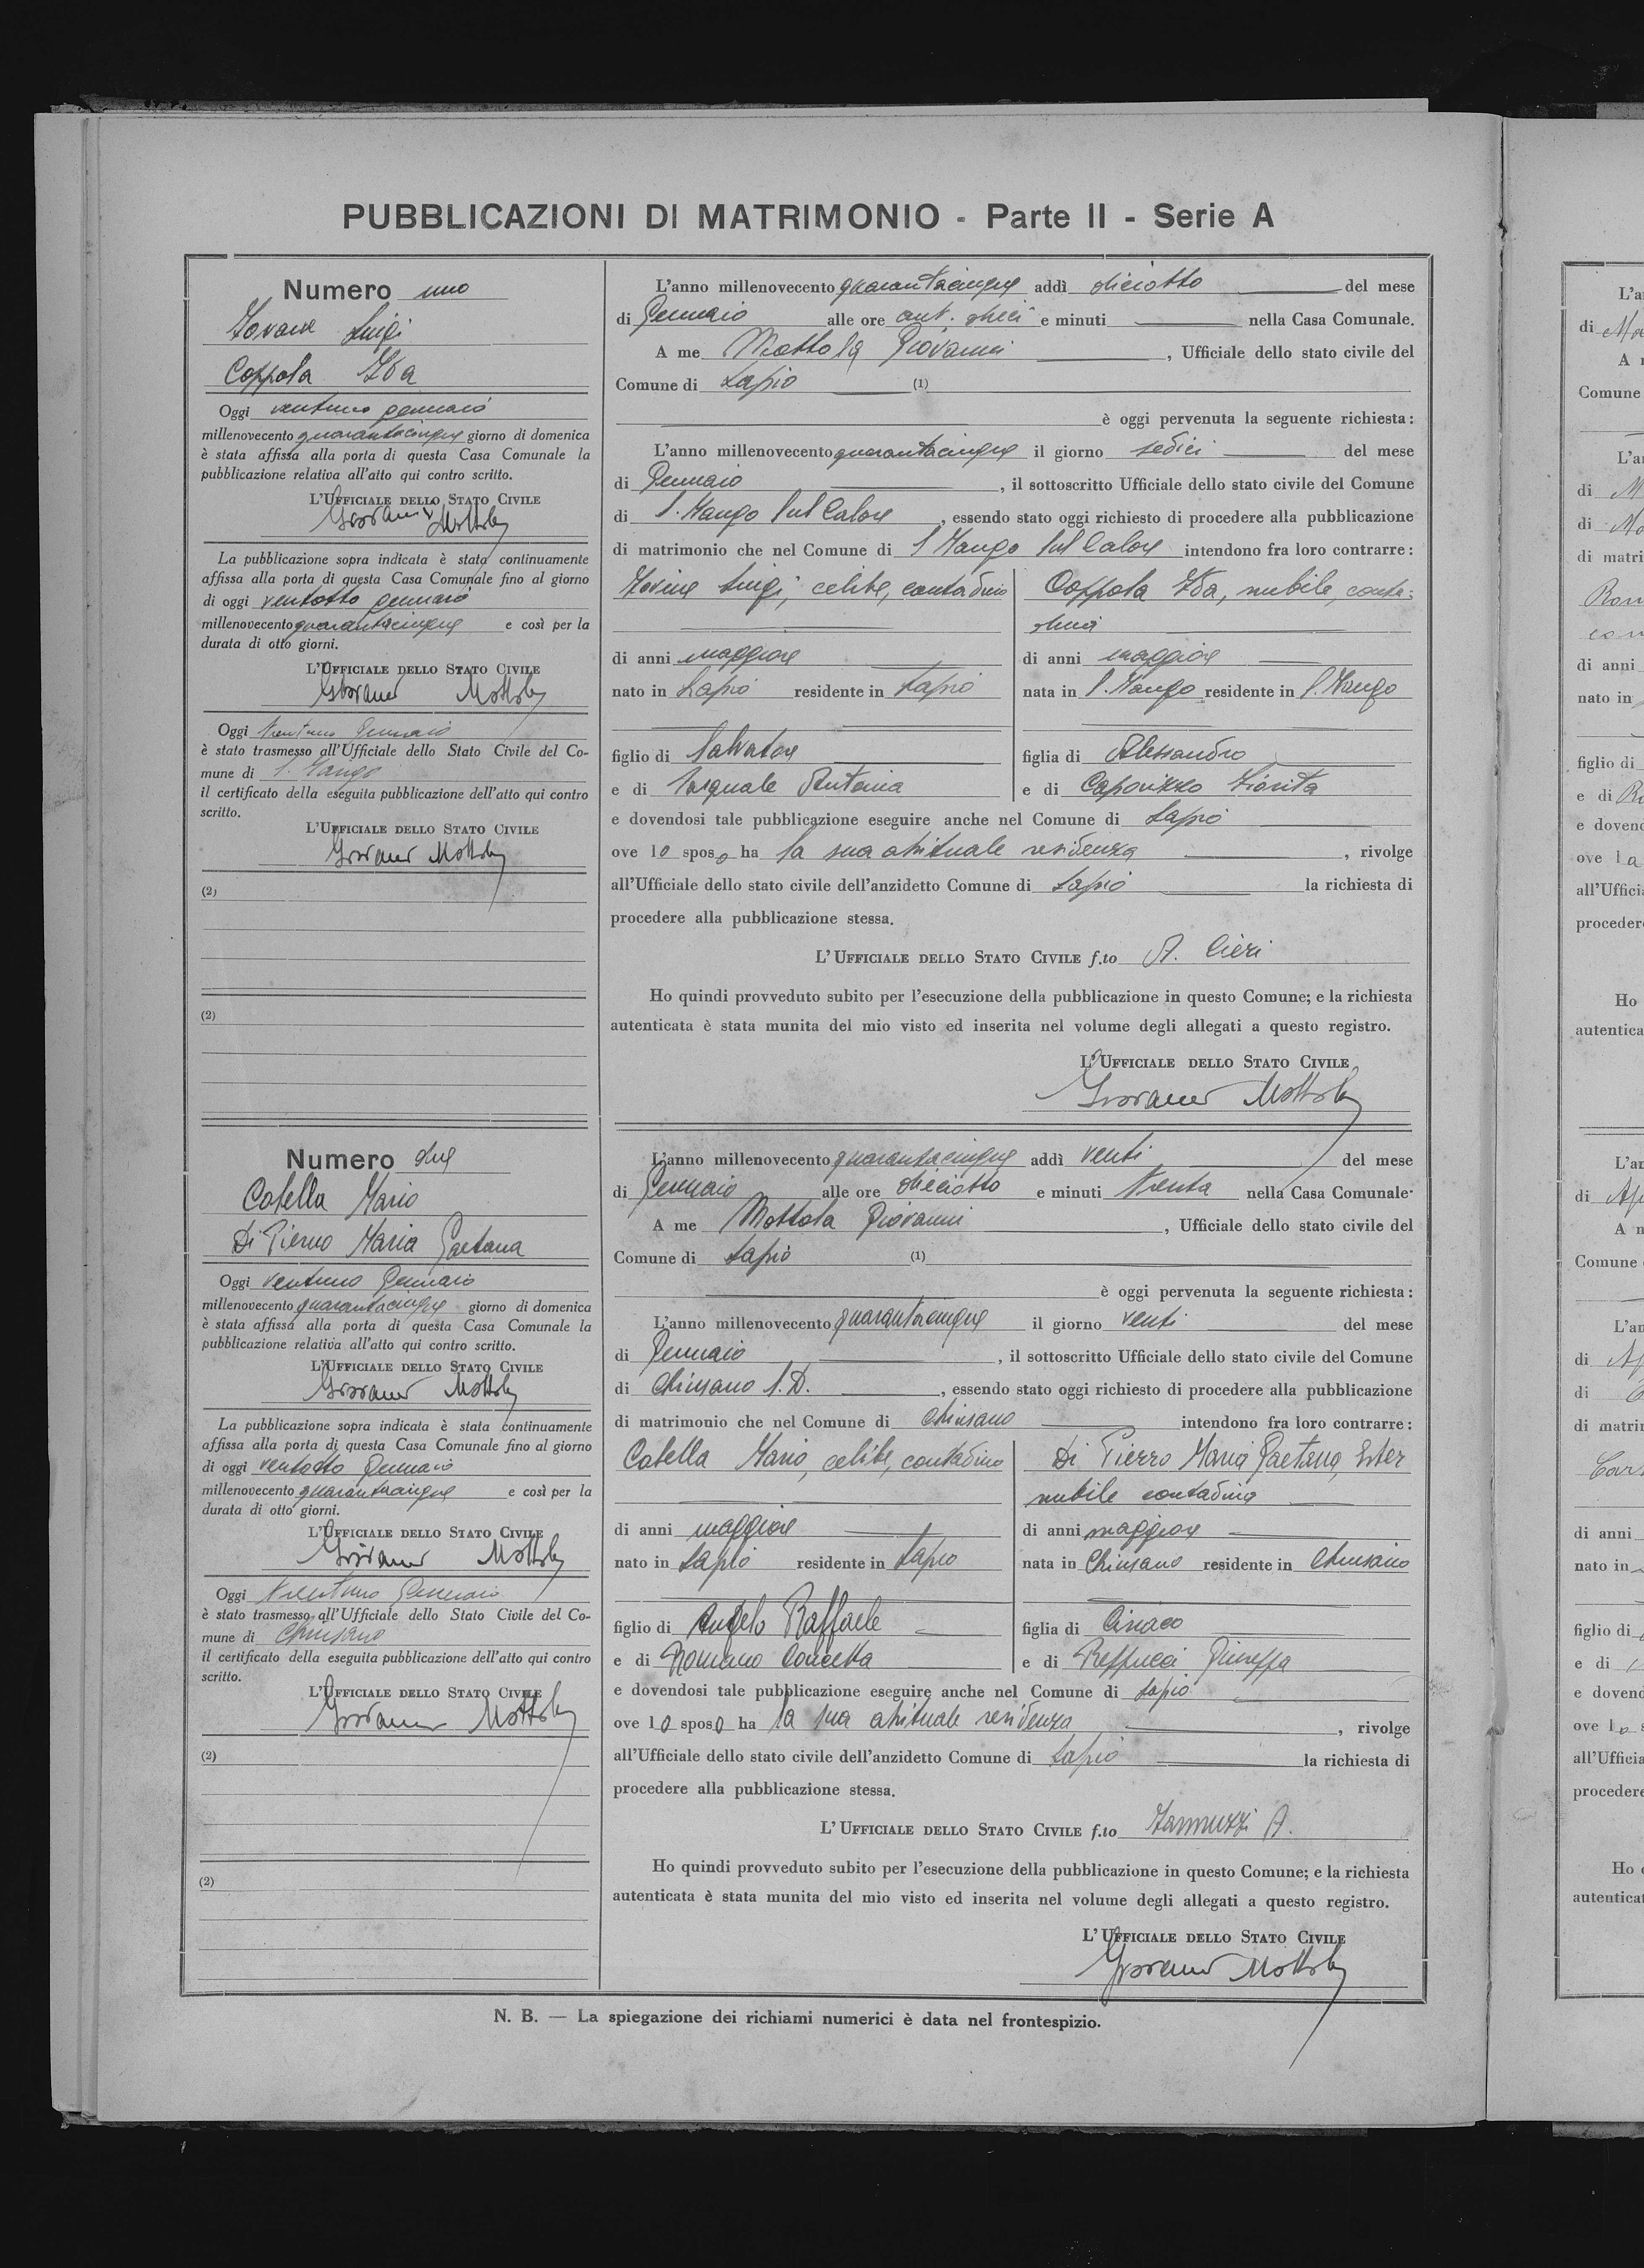 PUBBLICAZIONI DI MATRIMONIO - Parte II - Serie A
Numero uno
Iovane Luigi
Coppola Ida
Oggi ventuno gennaio
millenovecento quarantacinque giorno di domenica
è stata affissa alla porta di questa Casa Comunale la
pubblicazione relativa all'atto qui contro scritto.
L'UFFICIALE DELLO STATO CIVILE
Giovanni Mottola
La pubblicazione sopra indicata è stata continuamente
affissa alla porta di questa Casa Comunale fino al giorno
di oggi ventotto gennaio
millenovecento quarantacinque e così per la
durata di otto giorni.
L'UFFICIALE DELLO STATO CIVILE
Giovanni Mottola
Oggi trentuno Gennaio
è stato trasmesso all'Ufficiale dello Stato Civile del Co-
mune di S. Mango
il certificato della eseguita pubblicazione dell'atto qui contro
scritto.
L'UFFICIALE DELLO STATO CIVILE
Giovanni Mottola
(2)
(2)
L'anno millenovecento quarantacinque addì diciotto del mese
di Gennaio alle ore ant. dieci e minuti nella Casa Comunale.
A me Mottola Giovanni , Ufficiale dello stato civile del
Comune di Lapio (1)
è oggi pervenuta la seguente richiesta:
L'anno millenovecento quarantacinque il giorno sedici del mese
di Gennaio , il sottoscritto Ufficiale dello stato civile del Comune
di S. Mango sul Calore , essendo stato oggi richiesto di procedere alla pubblicazione
di matrimonio che nel Comune di S Mango sul Calore intendono fra loro contrarre:
Iovine Luigi, celibe, contadino
di anni maggiore
nato in Lapio residente in Lapio
figlio di Salvatore
e di Pasquale Antonia
Coppola Ida, nubile, conta:
dina
di anni maggiore
nata in S. Mango residente in S. Mango
figlia di Alessandro
e di Caporizzo Fiorita
e dovendosi tale pubblicazione eseguire anche nel Comune di Lapio
ove lo sposo ha la sua abituale residenza , rivolge
all'Ufficiale dello stato civile dell'anzidetto Comune di Lapio la richiesta di
procedere alla pubblicazione stessa.
L'UFFICIALE DELLO STATO CIVILE f.to A. Cieri
Ho quindi provveduto subito per l'esecuzione della pubblicazione in questo Comune; e la richiesta
autenticata è stata munita del mio visto ed inserita nel volume degli allegati a questo registro.
L'UFFICIALE DELLO STATO CIVILE
Giovanni Mottola
Numero due
Cobella Mario
Di Pierno Maria Gaetana
Oggi ventuno Gennaio
millenovecento quarantacinque giorno di domenica
è stata affissa alla porta di questa Casa Comunale la
pubblicazione relativa all'atto qui contro scritto.
L'UFFICIALE DELLO STATO CIVILE
Giovanni Mottola
La pubblicazione sopra indicata è stata continuamente
affissa alla porta di questa Casa Comunale fino al giorno
di oggi ventotto Gennaio
millenovecento quarantacinque e così per la
durata di otto giorni.
L'UFFICIALE DELLO STATO CIVILE
Giovanni Mottola
Oggi trentuno Gennaio
è stato trasmesso all'Ufficiale dello Stato Civile del Co-
mune di Chiusano
il certificato della eseguita pubblicazione dell'atto qui contro
scritto.
L'UFFICIALE DELLO STATO CIVILE
Giovanni Mottola
(2)
(2)
L'anno millenovecento quarantacinque addì venti del mese
di Gennaio alle ore diciotto e minuti trenta nella Casa Comunale.
A me Mottola Giovanni , Ufficiale dello stato civile del
Comune di Lapio (1)
è oggi pervenuta la seguente richiesta:
L'anno millenovecento quarantacinque il giorno venti del mese
di Gennaio , il sottoscritto Ufficiale dello stato civile del Comune
di Chiusano S.D. , essendo stato oggi richiesto di procedere alla pubblicazione
di matrimonio che nel Comune di Chiusano intendono fra loro contrarre:
Cobella Mario, celibe, contadino
di anni maggiore
nato in Lapio residente in Lapio
figlio di Angelo Raffaele
e di Romano Concetta
Di Pierro Maria Gaetana, Ester
nubile contadina
di anni maggiore
nata in Chiusano residente in Chiusano
figlia di Ciriaco
e di Reppucci Giuseppa
e dovendosi tale pubblicazione eseguire anche nel Comune di Lapio
ove lo sposo ha la sua abituale residenza , rivolge
all'Ufficiale dello stato civile dell'anzidetto Comune di Lapio la richiesta di
procedere alla pubblicazione stessa.
L'UFFICIALE DELLO STATO CIVILE f.to Iannuzzi A.
Ho quindi provveduto subito per l'esecuzione della pubblicazione in questo Comune; e la richiesta
autenticata è stata munita del mio visto ed inserita nel volume degli allegati a questo registro.
L'UFFICIALE DELLO STATO CIVILE
Giovanni Mottola
N. B. — La spiegazione dei richiami numerici è data nel frontespizio.